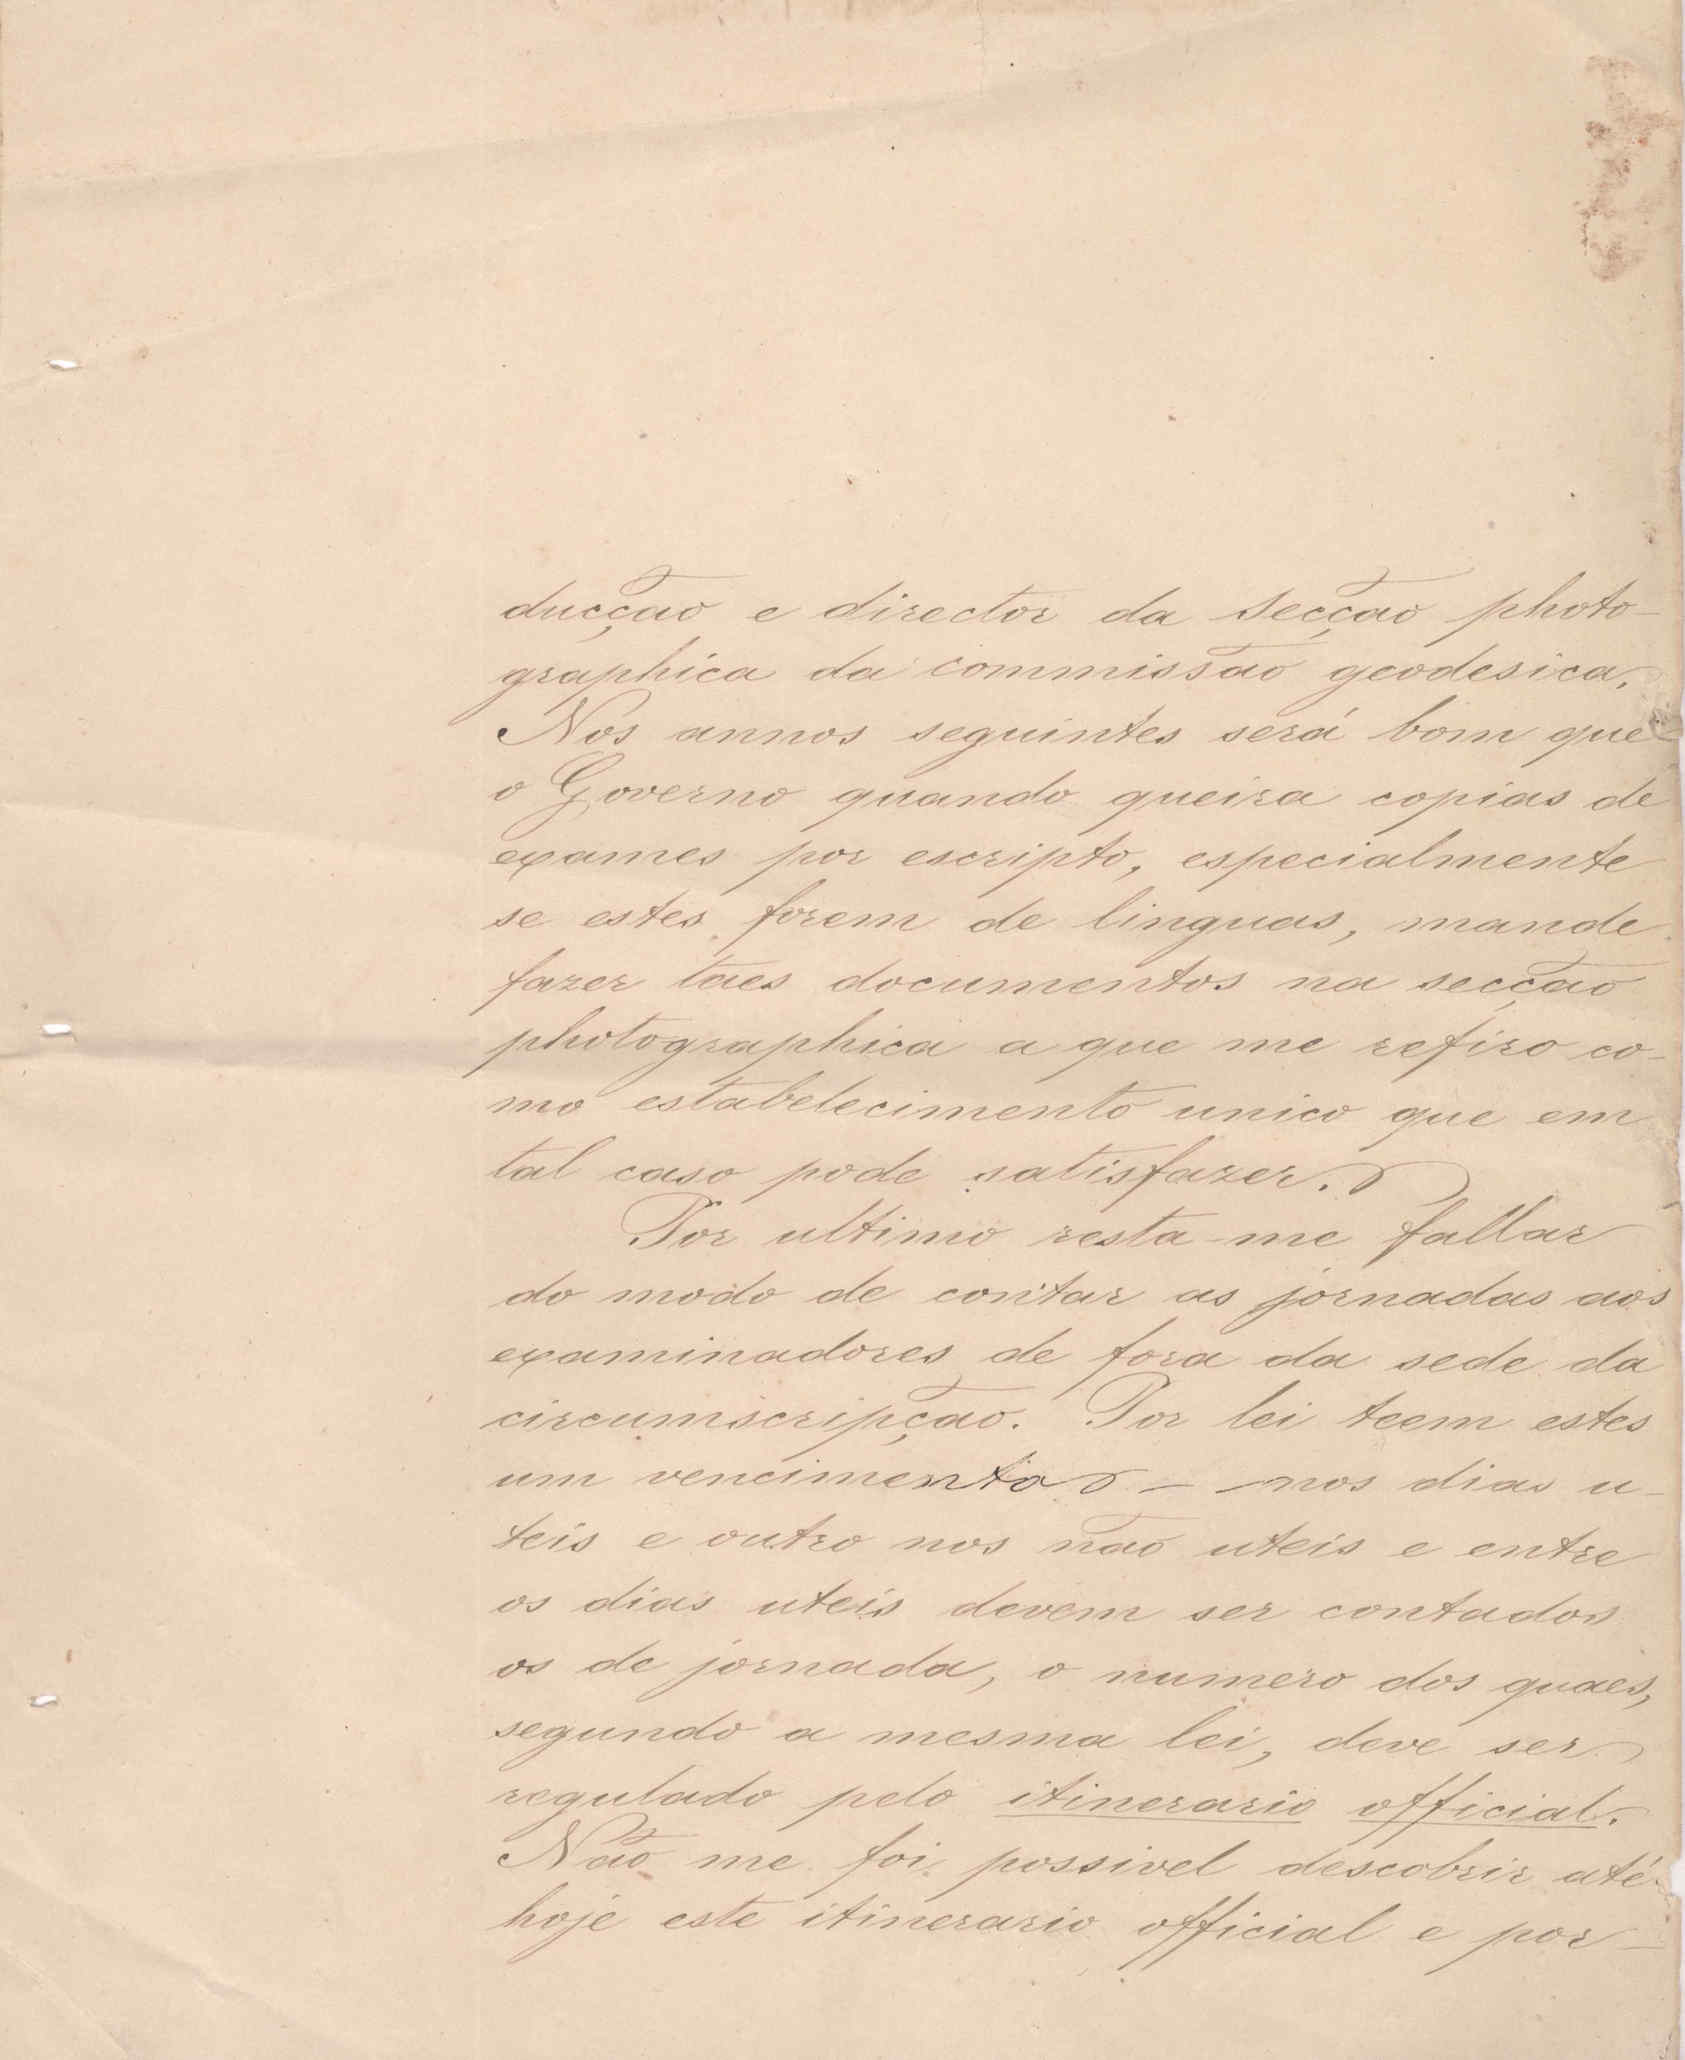 ducção e director da secção photo-
graphica da commissão geodesica.
Nos annos seguintes será bom que
o Governo quando queira copias de
exames por escripto, especialmente
se estes forem de linguas, mande
fazer taes documentos na secção
photographica a que me refiro co-
mo estabelecimento unico que em
tal caso pode satisfazer.
Por ultimo resta-me fallar
do modo de contar as jornadas aos
examinadores de fora da sede da
circumscripção. Por lei teem estes
um vencimento — nos dias u-
teis e outro nos não uteis e entre
os dias uteis devem ser contados
os de jornada, o numero dos quaes,
segundo a mesma lei, deve ser
regulado pelo itinerario official.
Não me foi possivel descobrir até
hoje este itinerario official e por-